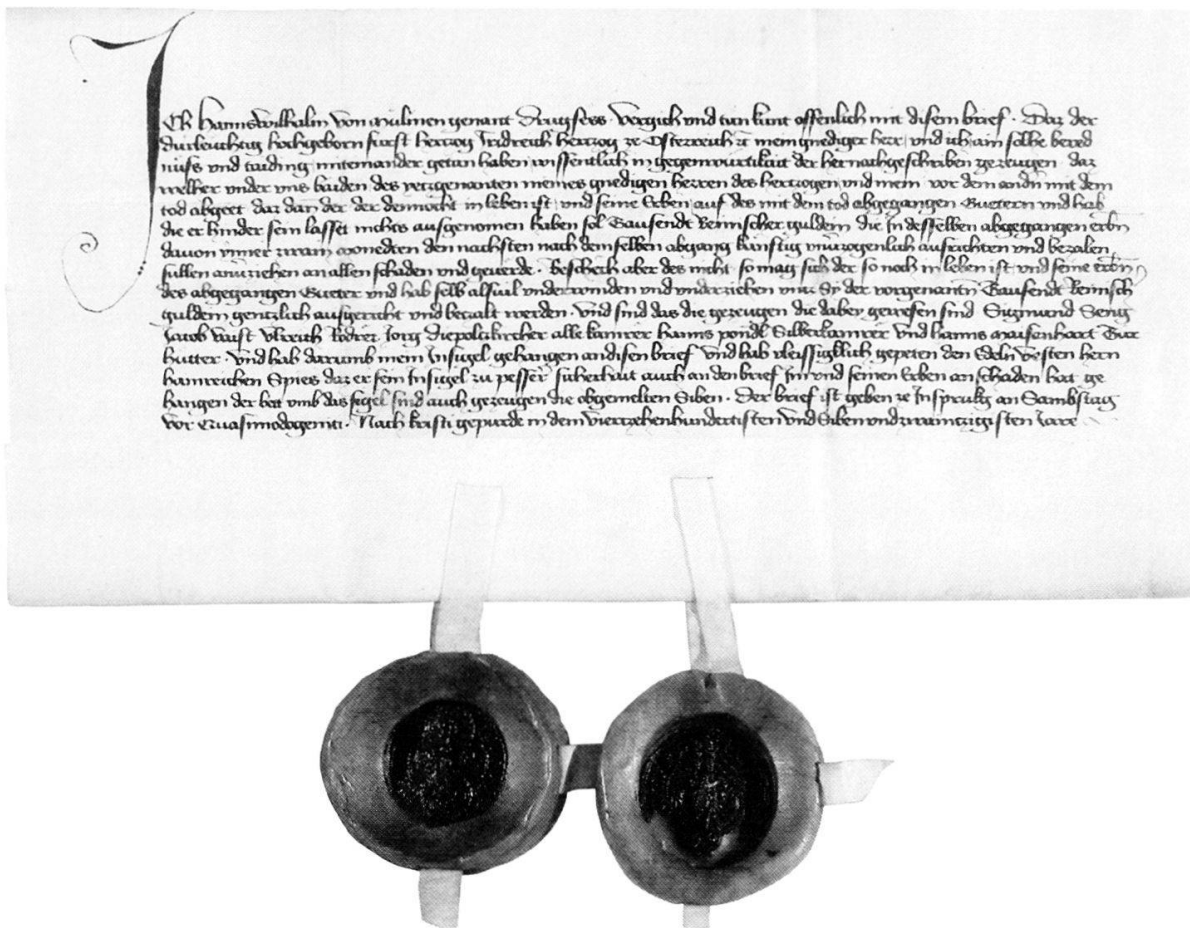 Ich Hannswilhalm von Mülinen genant Drugsess Vergich und tun kunt offenlich mit disem brief · Daz der
durleuchtig hochgeborn fürst Herczog Fridreich Herczog ze Österreich &c mein gnediger herr und ich ain solhe bered
nüss und taiding miteinander getan haben wissentlich in gegenwürtikait der hernachgeschriben gezeugen daz
welher under uns baiden des yetzgenanten meines gnedigen herren des hertzogen und mein vor dem andern mit dem
tod abgeet daz dann der der dennocht in leben ist und seine Erben auf des mit dem tod abgegangen Guetern und hab
die er hinder sein lasset nichts ausgenomen haben sol Tausendt Reinischer guldein die In desselben abgegangen erbn
davon inner zwain moneden den nachsten nach demselben abgang künftig unverzogenlich ausrichten und bezalen
süllen an an allen schaden und geverde · Beschech aber des nicht so mag sich der so noch in leben ist und seine erbn
des abgegangen Gueter und hab selb alsvil underwinden und underziehen untz Sy der vorgenantn Tausendt Reinisch
guldein gentzlich ausgericht und betzalt werden · Und sind das die gezeugen die dabey gewesen sind Sigmund
Jacob Ulreich Jorg Diepoltzkircher alle kamrer Hanns Silberkamrer und Hanns
hutter · Und hab darumb mein Insigel gehangen an disen brief Und hab vleissigklich gepeten den Edeln Vesten hern
hainreichen Spiess daz er sein Insigel zu pesser sicherhait auch an den brief Im und seinen Erben an schaden hat ge
hangen der bett umb das sigel sind auch gezeugen die obgemelten Siben · Der brief ist geben ze Insprukg an Sambstag
vor Quasimodogeniti · Nach kristi gepurde in dem viertzehenhundertisten und Siben undzwaintzigisten Jare